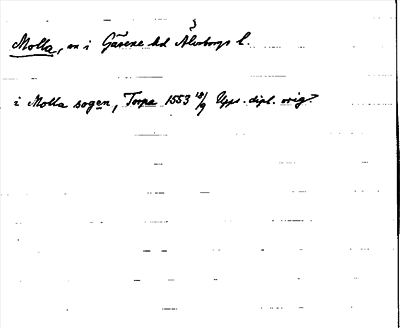 Molla, sn i Gäsene hd Älvsborgs l.
i Molla sogen, Torpa 1553 18/9 Upps. dipl. orig.